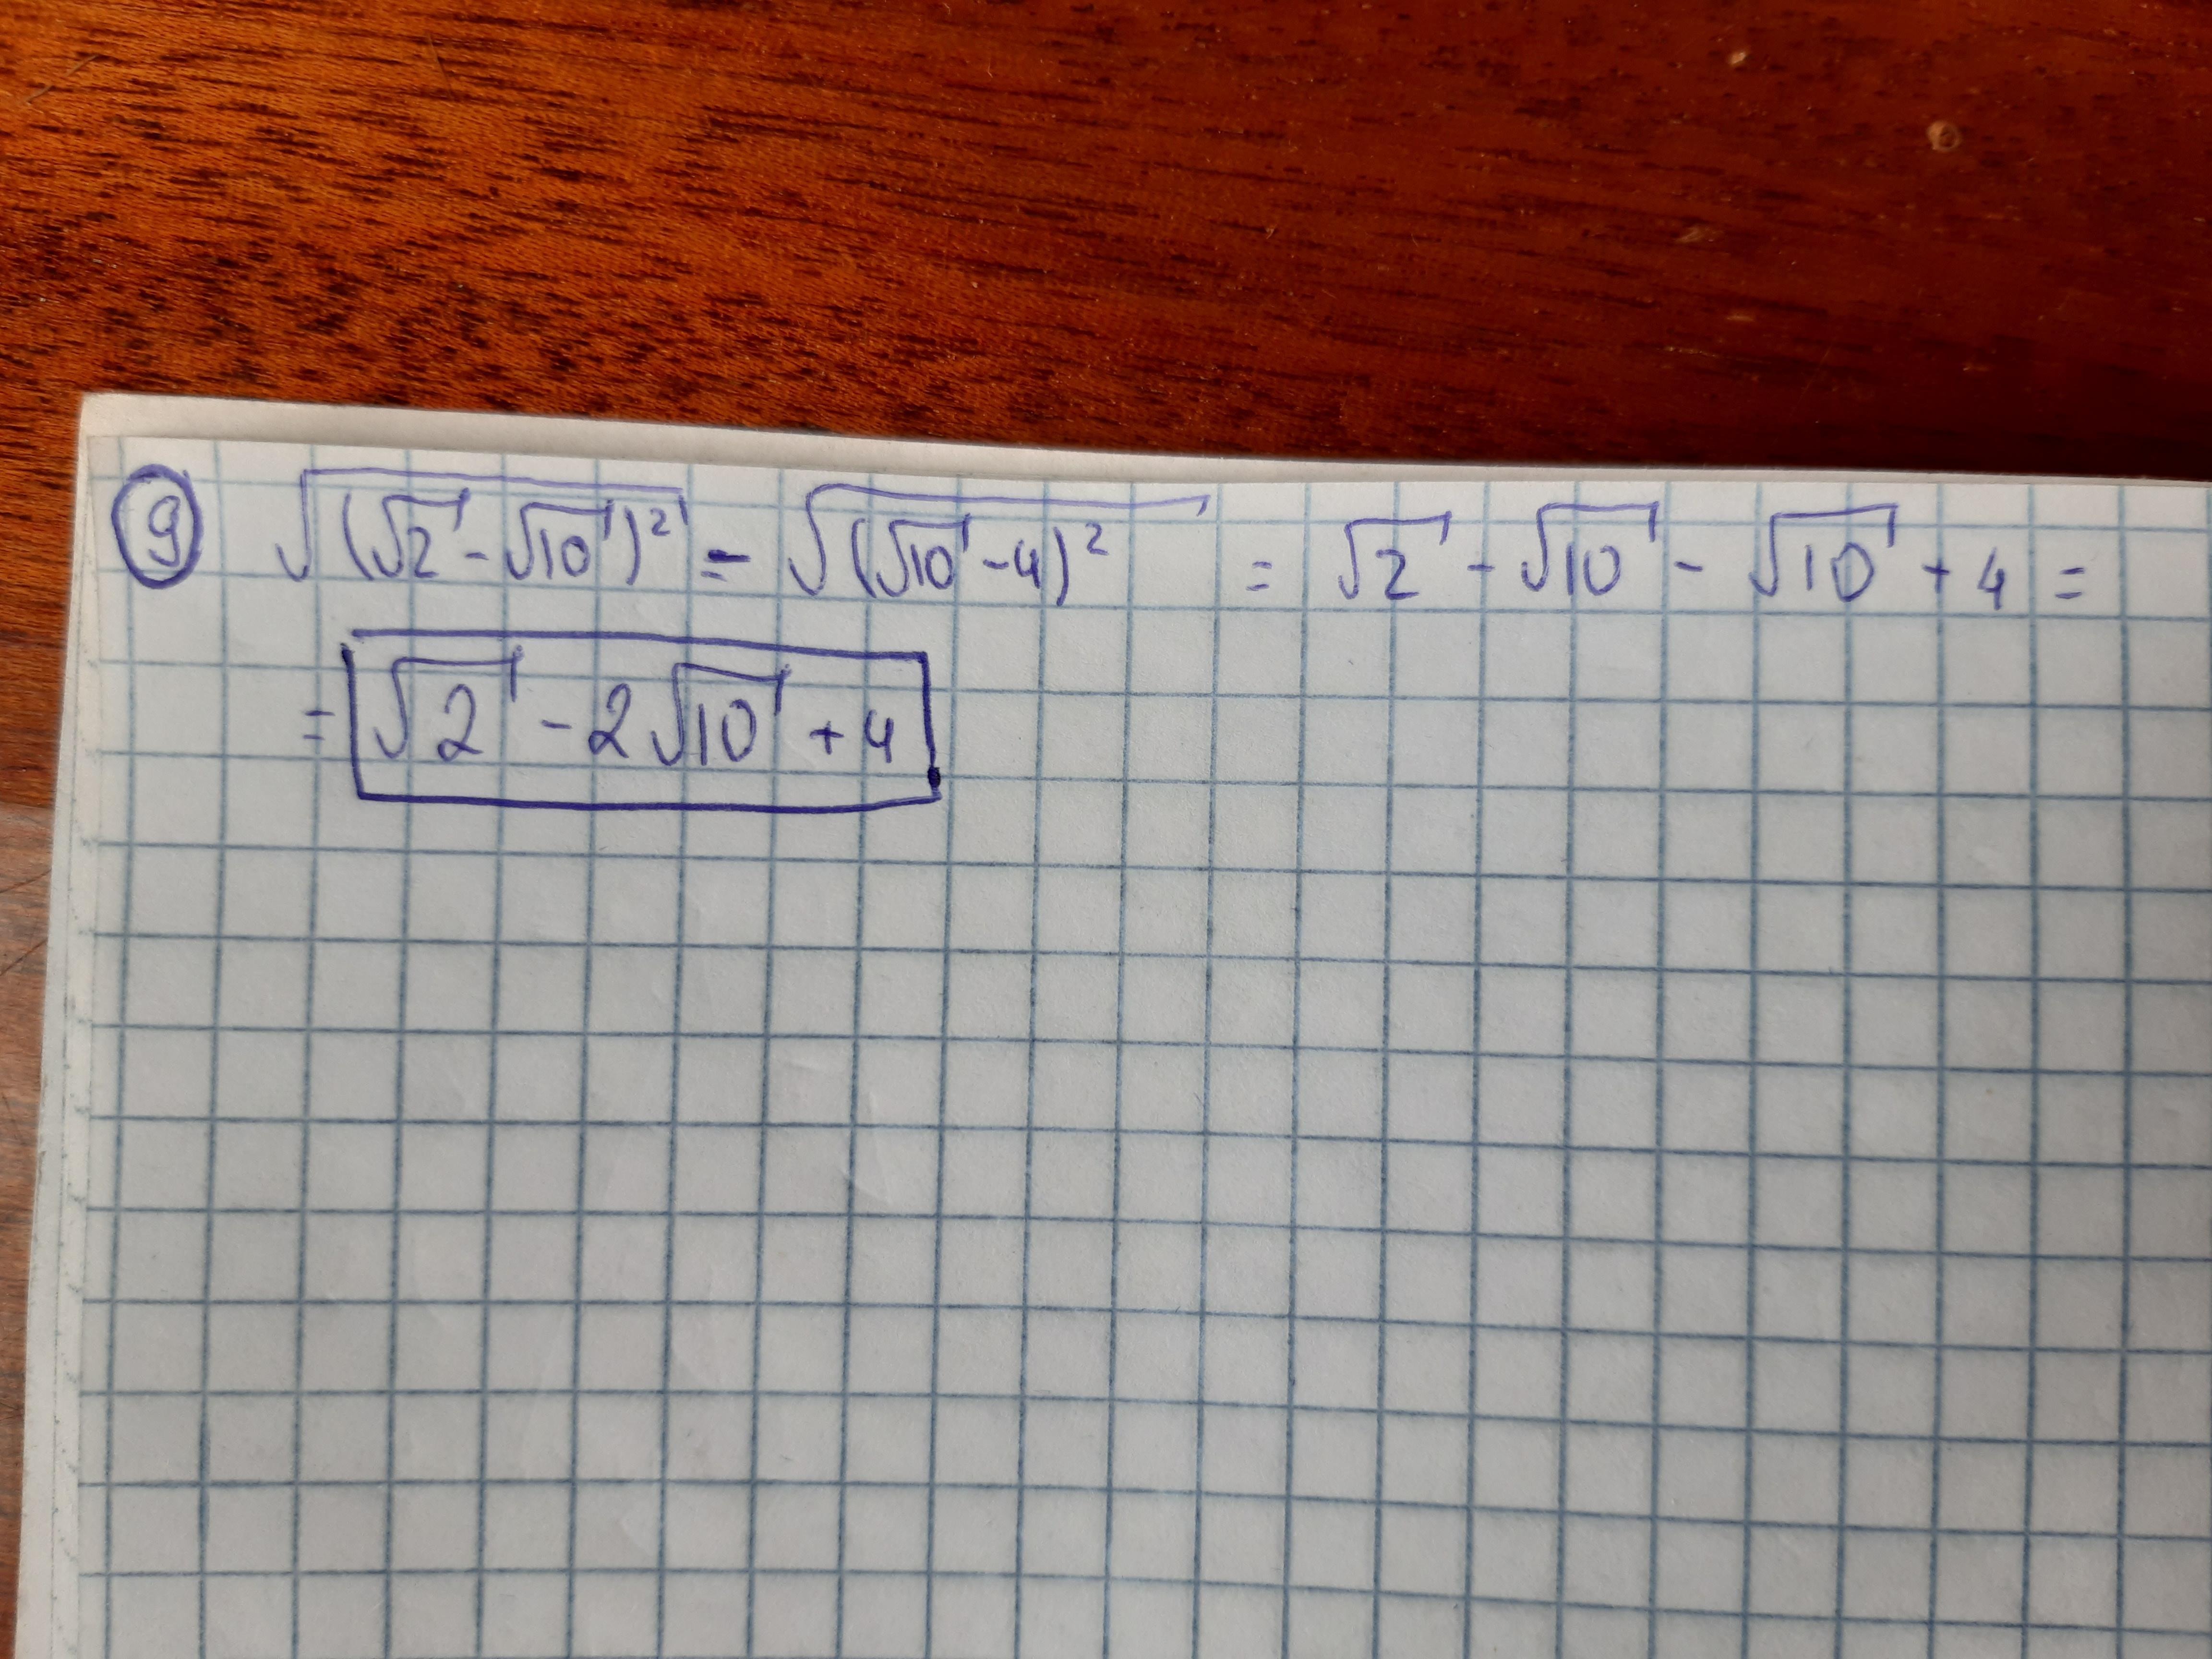 9 √(√2 - √10)² - √(√10 - 4)² = √2 - √10 - √10 + 4 =
= √2 - 2√10 + 4